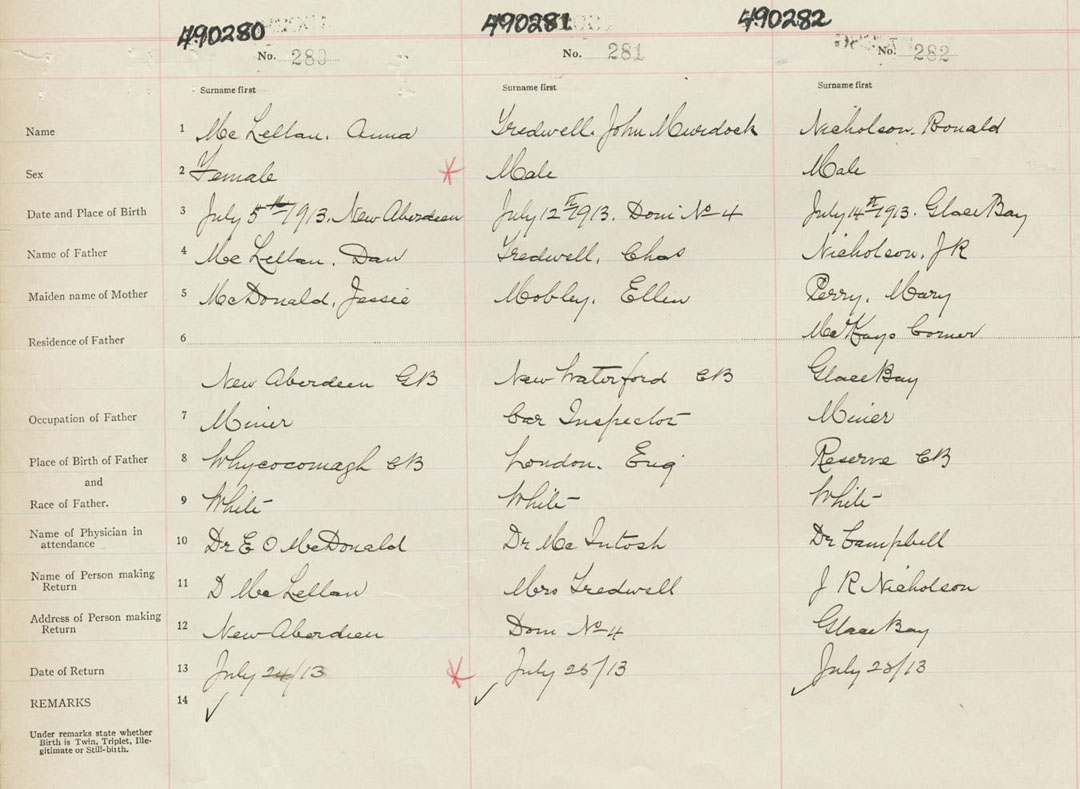 490280 490281 490282
No. 280 No. 281 No. 282
Surname first Surname first Surname first
Name 1 McLellan, Anna Tredwell, John Murdock Nicholson, Ronald
Sex 2 Female Male Male
Date and Place of Birth 3 July 5th 1913. New Aberdeen July 12th 1913. Dom No 4 July 14th 1913. Glace Bay
Name of Father 4 McLellan, Dan Tredwell, Chas Nicholson, J R
Maiden name of Mother 5 McDonald, Jessie Mobley, Ellen Perry, Mary
Residence of Father 6 McKays Corner
New Aberdeen GB New Waterford CB Glace Bay
Occupation of Father 7 Miner Car Inspector Miner
Place of Birth of Father 8 Whycocomagh CB London. Eng Reserve CB
and
Race of Father. 9 White White White
Name of Physician in
attendance 10 Dr E O McDonald Dr McIntosh Dr Campbell
Name of Person making
Return 11 D McLellan Mrs Tredwell J R Nicholson
Address of Person making
Return 12 New Aberdeen Dom No 4 Glace Bay
Date of Return 13 July 24/13 July 25/13 July 28/13
REMARKS 14
Under remarks state whether
Birth is Twin, Triplet, Ille-
gitimate or Still-birth.